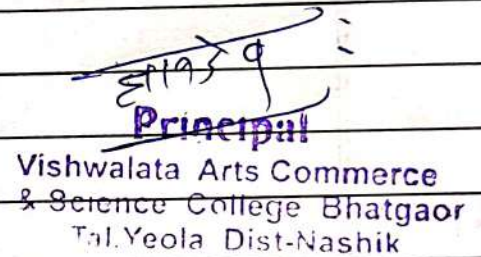 Principal
Vishwalata Arts Commerce
& Science College Bhatgaor
Tal. Yeola Dist-Nashik